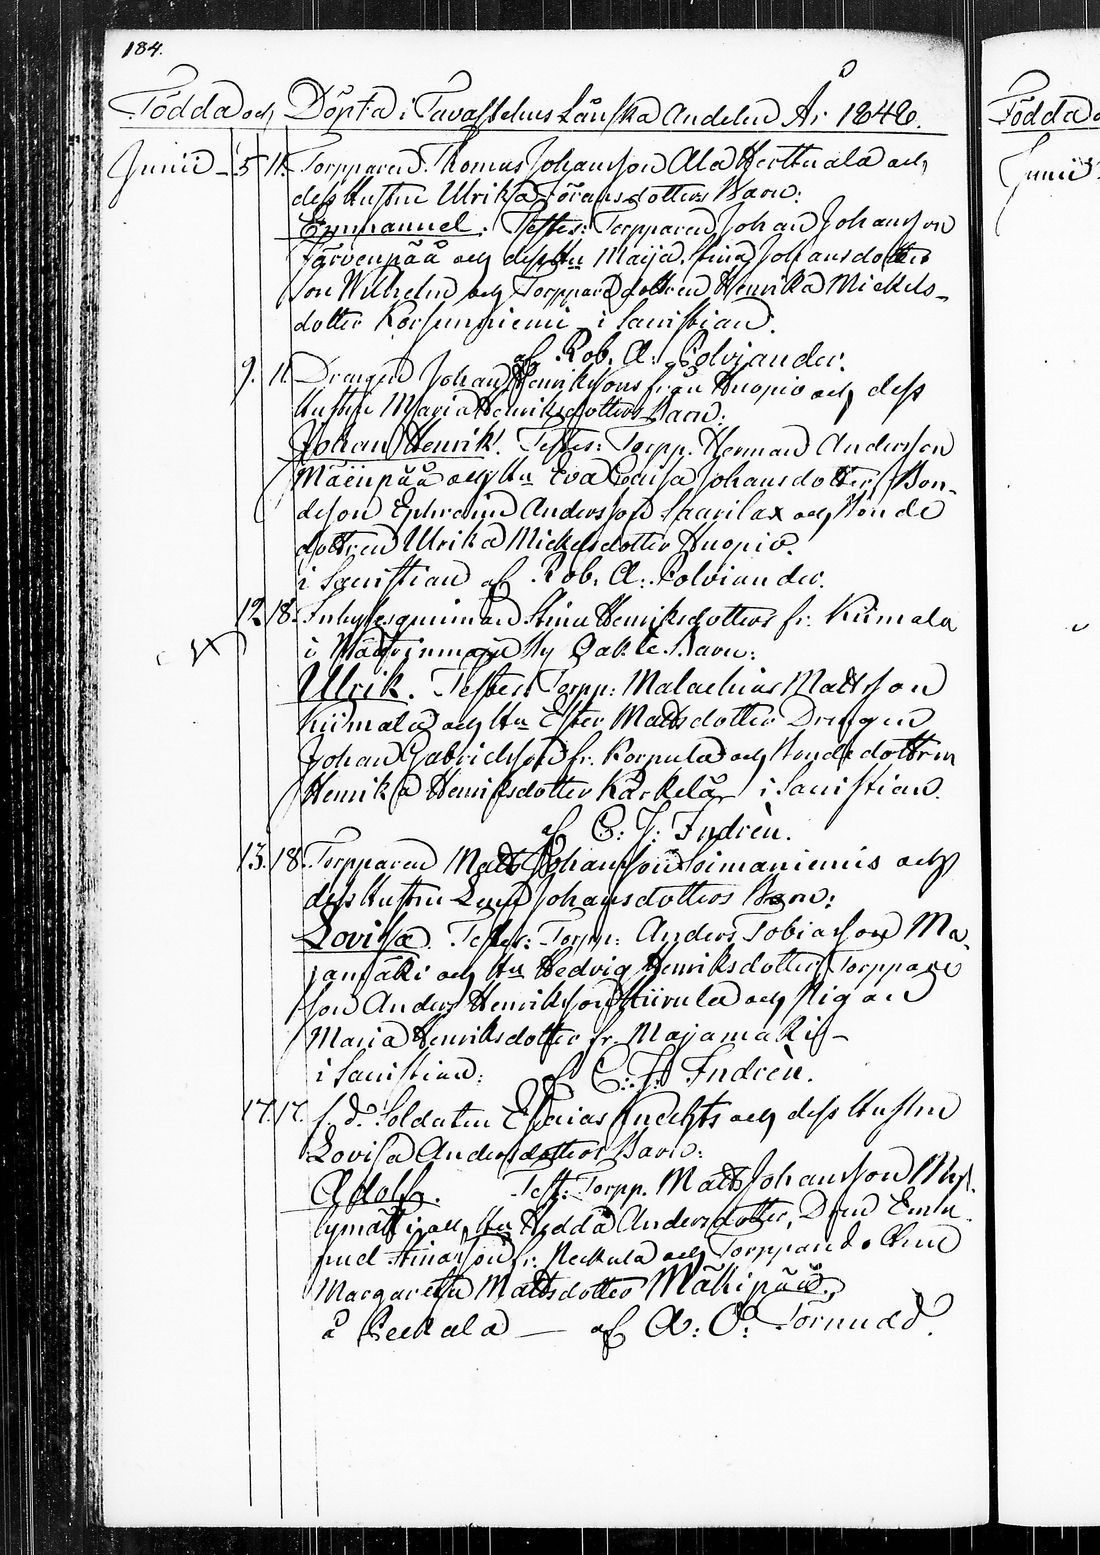 184.
Födda och Döpta i Tavastehus Länska Andelen År 1846.
Födda
Junii 5 11. Torpparen Thomas Johansson Ala Herttuala och
dess Hustru Ulrika Göransdotters Barn:
Emmanuel. Testes: Torpparen Johan Johansson
Järvenpää och dess Hu Maija Stina Johansdotter
son Wilhelm och Torppare dottren Henrika Mickels-
dotter Korsunniemi i Sanistian
af Rob. A: Polviander.
9. 11. Drengen Johan Henrikssons från Kuopio och dess
Hustru Maria Henriksdotters Barn:
Johan Henrik. Testes: Torpp. Herman Andersson
Mäenpää och Hu Eva Lovisa Johansdotter, Bon-
deson Ephraim Andersson Saarilax och Bonde
dottren Ulrika Mickelsdotter Kuopio.
i Sanistian af Rob. A: Polviander.
12 18. Inhysesquinnan Stina Henriksdotters fr. Kiimala
i by Oäkta Barn:
Ulrik. Testes: Torpp: Malachias Mattsson
Kiimala och Hu Ester Mattsdotter Drengen
Johan Gabrielsson fr. Korpula och Bondedottren
Henrika Henriksdotter Kärkelä i Sanistian.
af C: J: Indrèn.
13. 18. Torpparen Matts Johansson Soimaniemis och
dess Hustru Lena Johansdotters Barn:
Lovisa. Testes: Torpp: Anders Tobiasson Ma-
jamäki och Hu Hedvig Henriksdotter, Torppare
son Anders Henriksson och Pigan
Maria Henriksdotter fr. Majamäki
i Sanistian: af C: J: Indrèn.
17. 17. f. d. Soldaten Esaias Knechts och dess Hustru
Lovisa Andersdotters Barn:
Adolf. Test: Torpp. Matts Johansson Myl-
lymäki och Hu Hedda Andersdotter, Dren Ema-
nuel fr. Neckula och Torppared.
Margaretha Mattsdotter Mäkipää.
å af A: O: Törnudd.
Junii